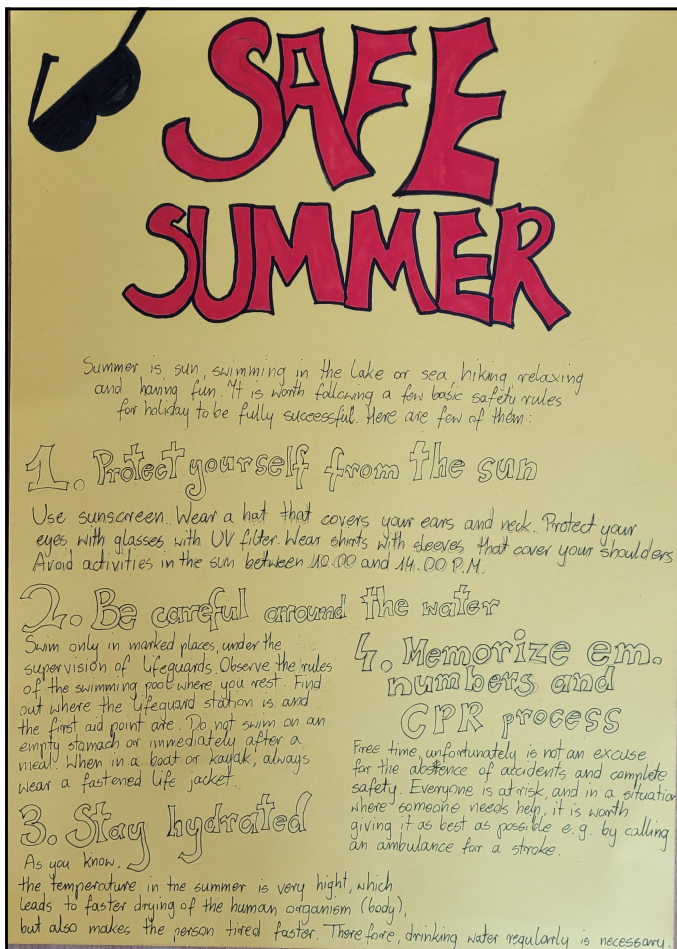 SAFE
SUMMER
Summer is sun, swimming in the lake or sea, hiking relaxing
and having fun. It is worth following a few basic safety rules
for holiday to be fully successful. Here are few of them:
1. Protect yourself from the sun
Use sunscreen. Wear a hat that covers your ears and neck. Protect your
eyes with glasses with UV filter. Wear shirts with sleeves that cover your shoulders
Avoid activities in the sun between 10.00 and 14.00 P.M.
2. Be careful arround the water
Swim only in marked places, under the
supervision of lifeguards. Observe the rules
of the swimming pool where you rest. Find
out where the lifeguard station is and
the first aid point are. Do not swim on an
empty stomach or immediately after a
meal. When in a boat or kayak, always
wear a fastened life jacket.
3. Stay hydrated
As you know,
the temperature in the summer is very hight, which
leads to faster drying of the human organism (body),
but also makes the person tired faster. Therefore, drinking water regularly is necessary.
4. Memorize em.
numbers and
CPR process
Free time, unfortunately is not an excuse
for the absence of accidents and complete
safety. Everyone is at risk, and in a situation
where someone needs help, it is worth
giving it as best as possible e.g. by calling
an ambulance for a stroke.